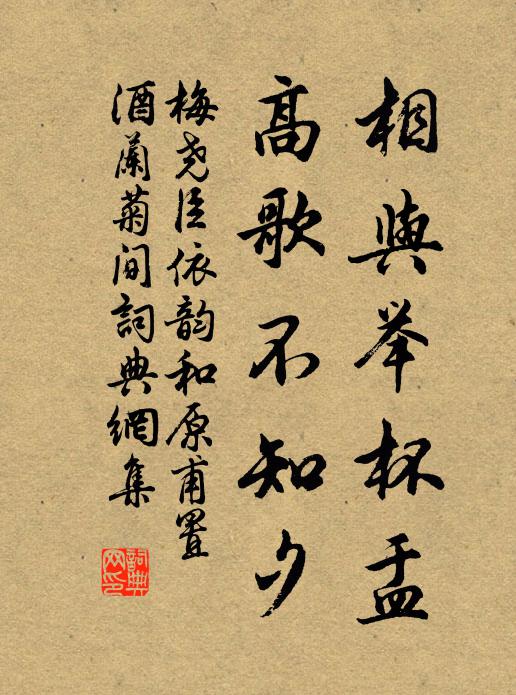 相與举杯盂
高歌不知夕
梅尧臣依韵和原甫置
酒蘭菊间詞典網集
詞典
网印